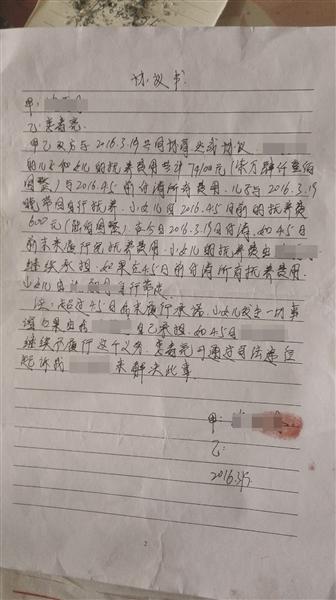 协议书
甲:
乙:娄春亮
甲乙双方与2016.3.19共同协商达成协议
的儿子和女儿的抚养费用共计74100元(柒万肆仟壹佰
圆整)与2016.4.5前付清所有费用.儿子与2016.3.19
自行抚养.小女儿因2016.4.5日前的抚养费
600元(陆佰圆整),在今日2016.3.19日付清.如4.5日
前未来履行完抚养费用.小女儿的抚养费由
继续承担.如果在4.5日前付清所有抚养费用.
小女儿由 自行带走
注:超过4.5日前未履行承诺.小女儿发生一切事
后果由 自己承担.如4.5日
继续不履行这个义务,娄春亮可通过司法途径
起诉我 来解决此事.
甲:
乙:
2016.3.19
2